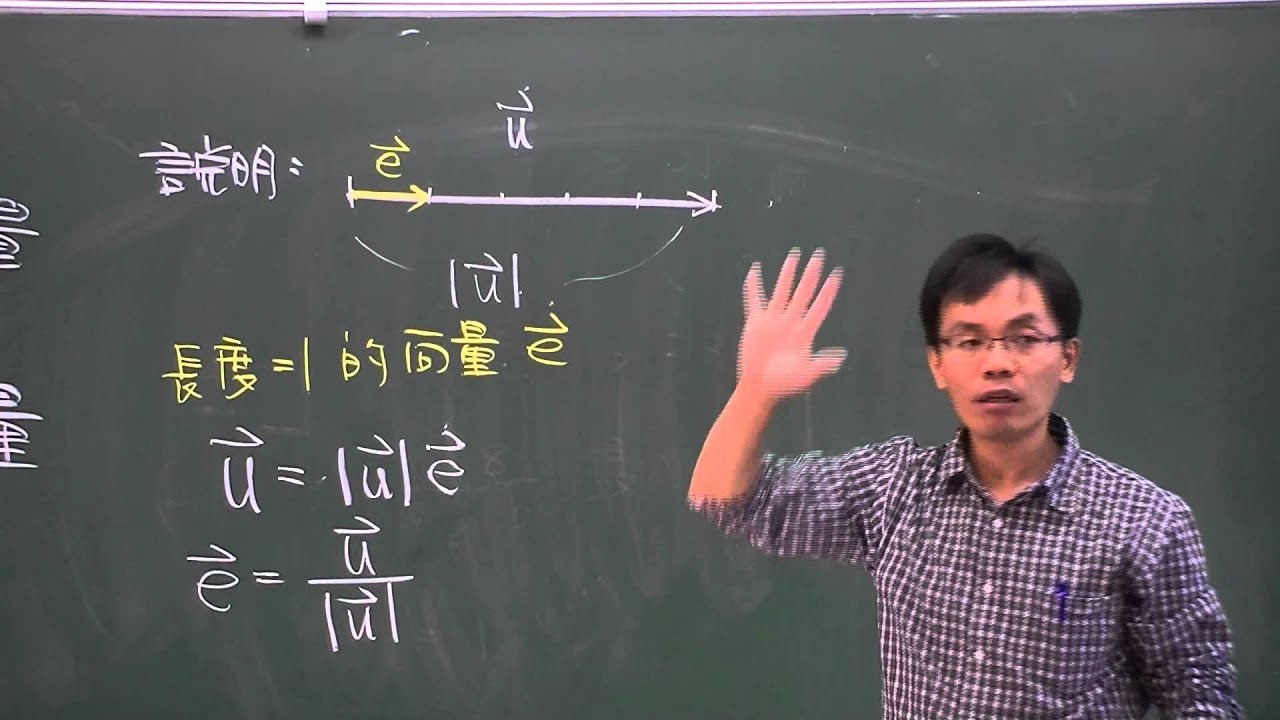 說明:
e⃗
u⃗
|u⃗|
長度=1 的向量 e⃗
u⃗ = |u⃗| e⃗
e⃗ = u⃗ / |u⃗|
量
量